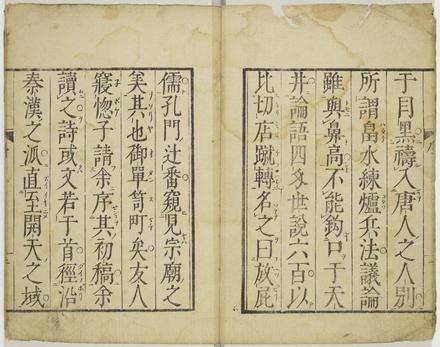 于目黒禱入唐人之人別
所謂畠水練爐兵法議論
雖與鼻高不能鈎口于天
井論語四多世說六百以
比切店蹴轉名之曰放屁
儒孔門辻番窺見宗廟之
美其也御單笥町矣友人
寢惚子請余序其初稿余
讀之詩或文若干首徑沿
秦漢之派直至開天之域